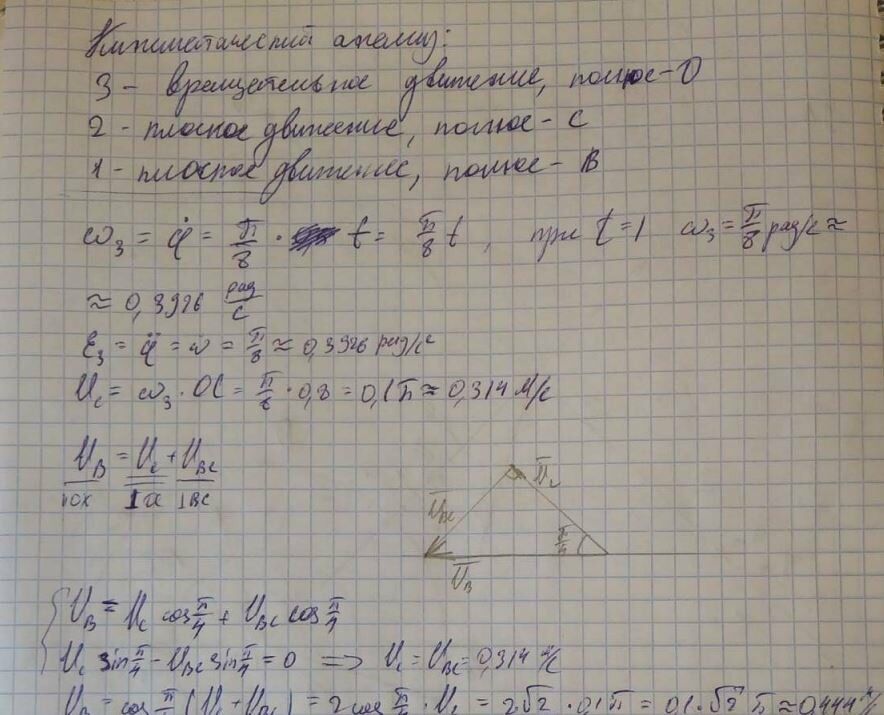 Кинематический анализ:
3 - вращательное движение, полюс - О
2 - плоское движение, полюс - С
1 - плоское движение, полюс - В
ω₃ = φ̇ = π/8 · t = π/8 t, при t=1 ω₃ = π/8 рад/с ≈
≈ 0,3926 рад/с
ε₃ = φ̈ = ω̇ = π/8 ≈ 0,3926 рад/с²
U_c = ω₃ · OC = π/8 · 0,8 = 0,1π ≈ 0,314 м/с
U_B = U_c + U_BC
||OX ⊥ ⊥BC
Ū_c
Ū_BC
π/4
Ū_B
U_B = U_c cos π/4 + U_BC cos π/4
U_c sin π/4 - U_BC sin π/4 = 0 ⟹ U_c = U_BC = 0,314 м/с
U_B = cos π/4 (U_c + U_BC) = 2cos π/4 · U_c = 2√2 · 0,1π = 0,1 · √2 π ≈ 0,444 м/с